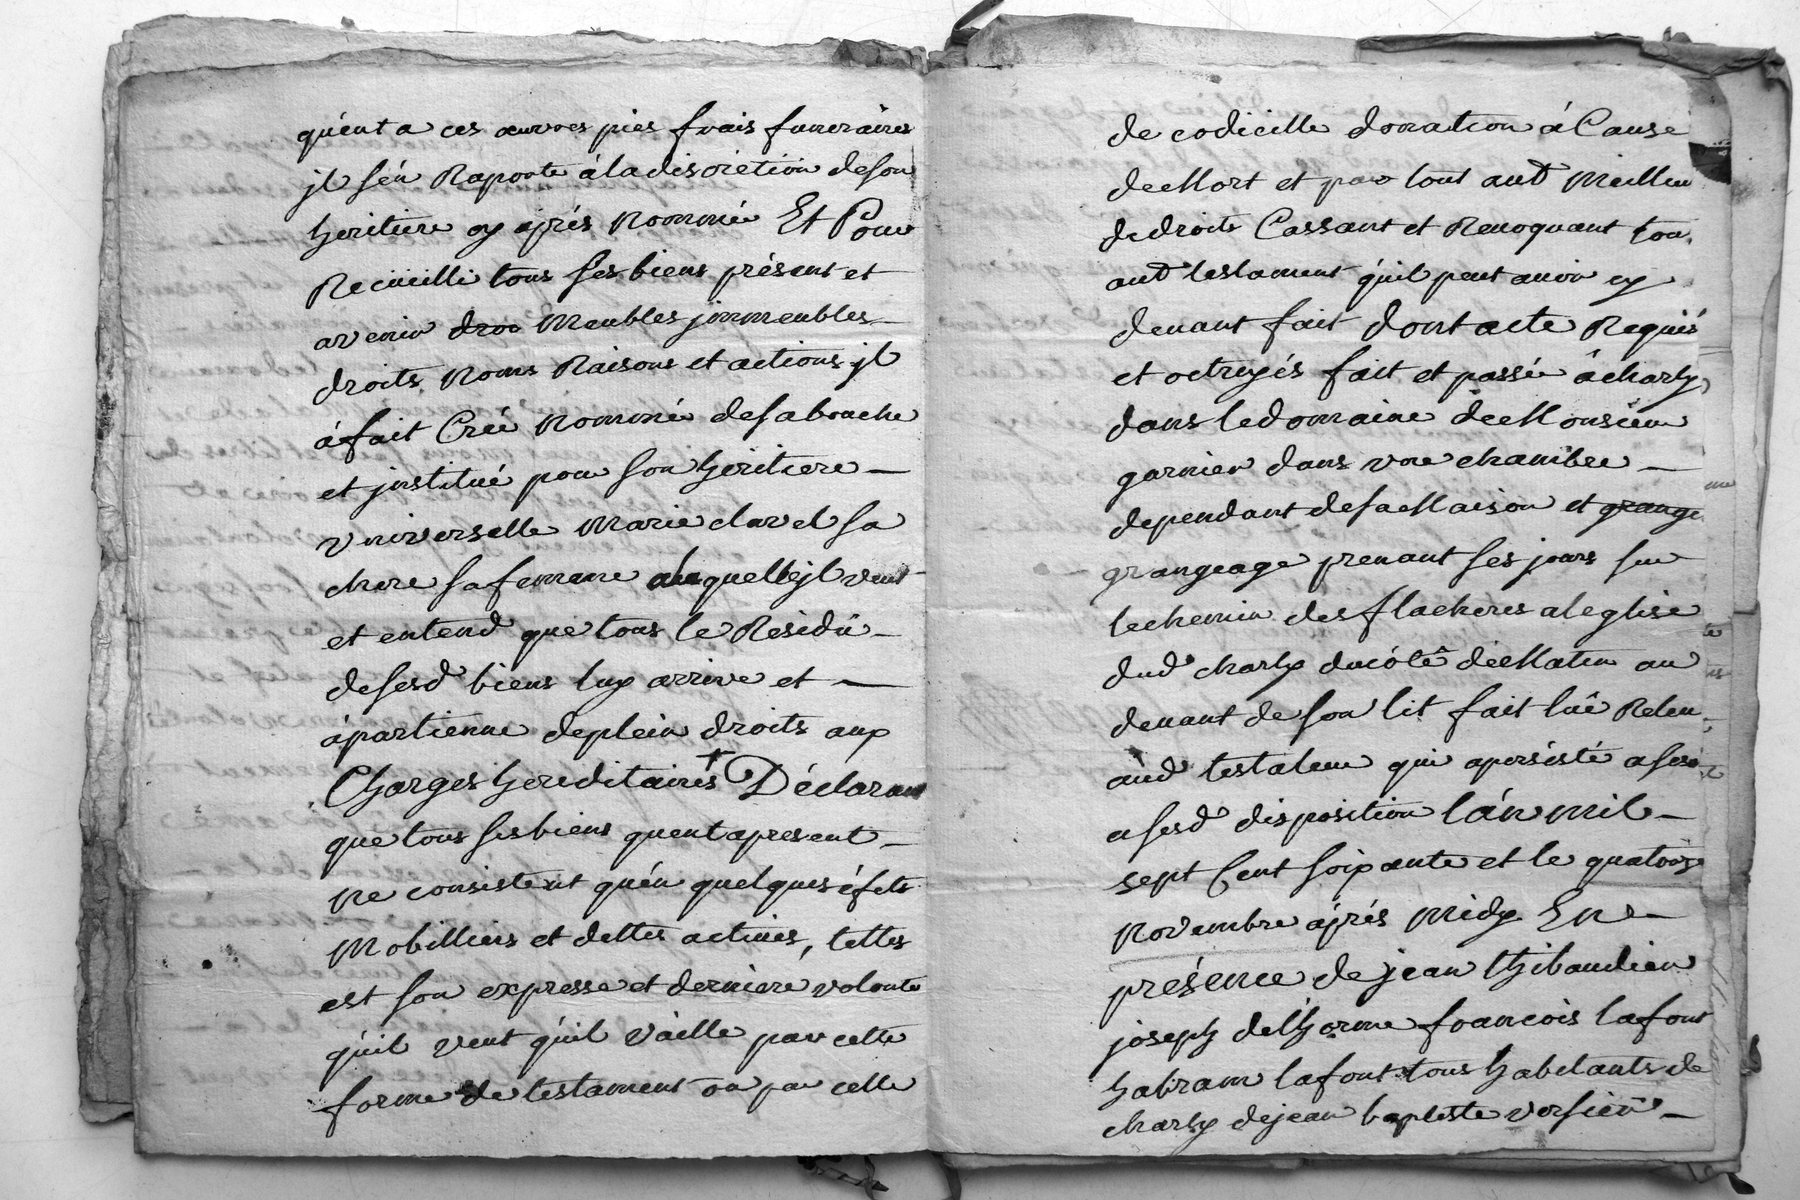 quent a ces œuvres pies frais funeraires
jl s'én Raporte á la discretion de son
heritiere cy aprés nommée Et Pour
Recüeilli tous ses biens présent et
avenir droo Meubles jmmeubles
droits Noms Raisons et actions jl
á fait Créé nommée de sa bouche
et jnstitué pour son heritiere
vniverselle Marie clavel sa
chere sa femme alaquelle jl veut
et entend que tous le Residû
de sesd biens luy arrive et
ápartienne de plein droits aux
Charges hereditaires + Déclarant
que tous ses biens quent apresent
ne consistent quén quelques éfets
Mobilliers et dettes actives, telles
est son expresse et derniere volonte
quil veut quil váille par cette
forme de testament ou par celle
de codicille donation á Cause
de Mort et par tout autt Meilleu
de droits Cassant et Revoquant tou
autt testament qúil peut avoir cy
devant fait dont acte Requis
et octroyés fait et passé á charly
dans le domaine de Monsieur
garnier dans vne chambre
dependant de sa Maison et grange
grangeage prenant ses jours sur
le chemin des flacheres a leglise
dud charly du côté de Matin au
devant de son lit fait lû Releu
aud testateur qui a persisté a ses
a sesd disposition lán mil
sept Cent soixante et le quatorze
novembre áprés Midy En
présence de jean thibaudier
joseph delhorme francois lafont
habram lafont tous habitants de
charly de jean baptiste versier